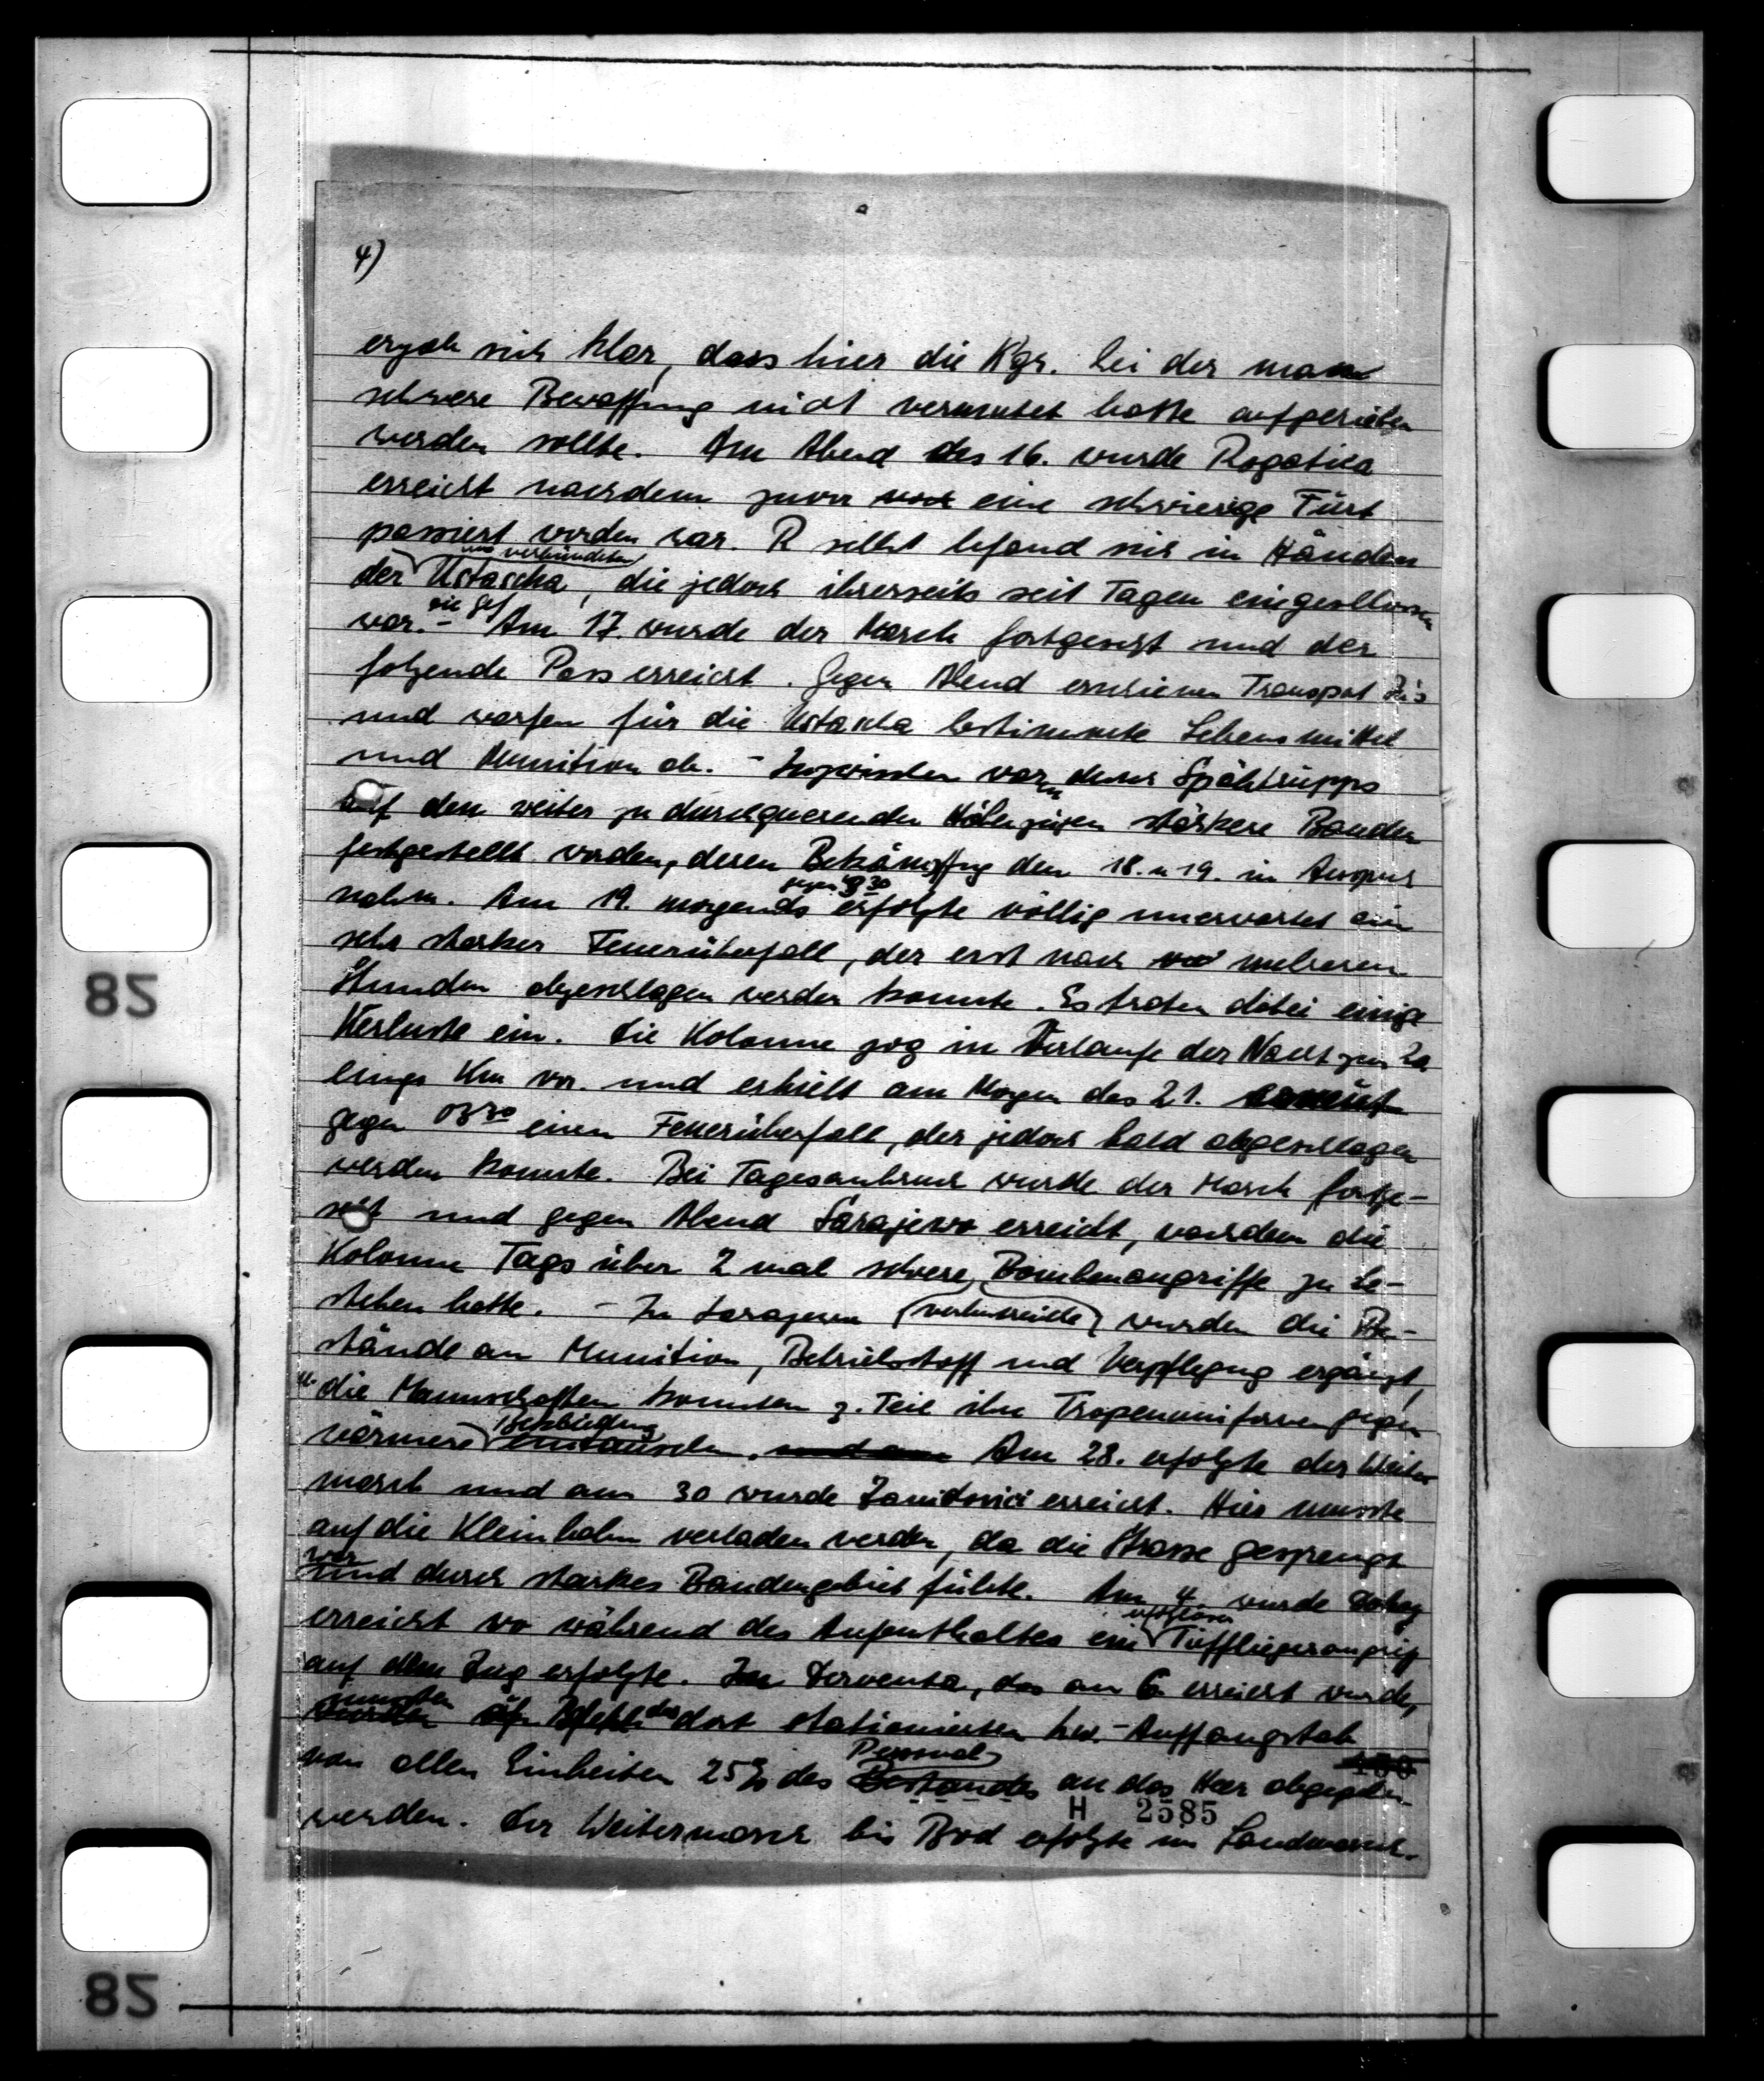 4)
ergab sich klar, dass hier die Kgr. bei der man
schwere Bewaffnung nicht vermutet hatte aufgerieben
werden sollte. Am Abend des 16. wurde Rogatica
erreicht nachdem zuvor eine schwierige Furt
passiert worden war. R selbst befand sich in Händen
der uns verbündeten Ustascha, die jedoch ihrerseits seit Tagen eingeschlossen
war. - Am 17. wurde der Marsch fortgesetzt und der
folgende Pass erreicht. Gegen Abend erschienen Transport
und warfen für die Ustascha bestimmte Lebensmittel
und Munition ab. - Inzwischen waren durch Spähtrupps
auf den weiter zu durchquerenden Höhenzügen stärkere Banden
festgestellt worden, deren Bekämpfung den 18. u 19. in Anspruch
nahm. Am 19. morgends gegen 8 30 erfolgte völlig unerwartet ein
sehr starker Feuerüberfall, der erst nach mehreren
Stunden abgeschlagen werden konnte. Es traten dabei einige
Verluste ein. Die Kolonne zog im Verlaufe der Nacht zum 20
einige Km vor. und erhielt am Morgen des 21.
gegen 03 30 einen Feuerüberfall, der jedoch bald abgeschlagen
werden konnte. Bei Tagesanbruch wurde der Marsch fortge-
setzt und gegen Abend Sarajewo erreicht, nachdem die
Kolonne Tags über 2 mal schwere Bombenangriffe zu be-
stehen hatte. - In Sarajewo wurden die Be-
stände an Munition, Betriebstoff und Verpflegung ergänzt,
u. die Mannschaften konnten z. Teil ihre Tropenuniformen gegen
wärmere Bekleidung eintauschen. Am 28. erfolgte der Weiter
marsch und am 30 wurde Zavidovici erreicht. Hier musste
auf die Kleinbahn verladen werden, da die Strasse gesprengt
war und durch starkes Bandengebiet führte. Am 4 wurde Doboj
erreicht wo während des Aufenthaltes ein erfolgloser Tieffliegerangriff
auf den Zug erfolgte. In Derventa, das am 6. erreicht wurde,
mussten auf Befehl des dort stationierten Lw.-Auffangstab
von allen Einheiten 25% des Personal Bestandes an das Heer abgegeben
H 2585
werden. Der Weitermarsch bis Brod erfolgte im Landmarsch.
82
82